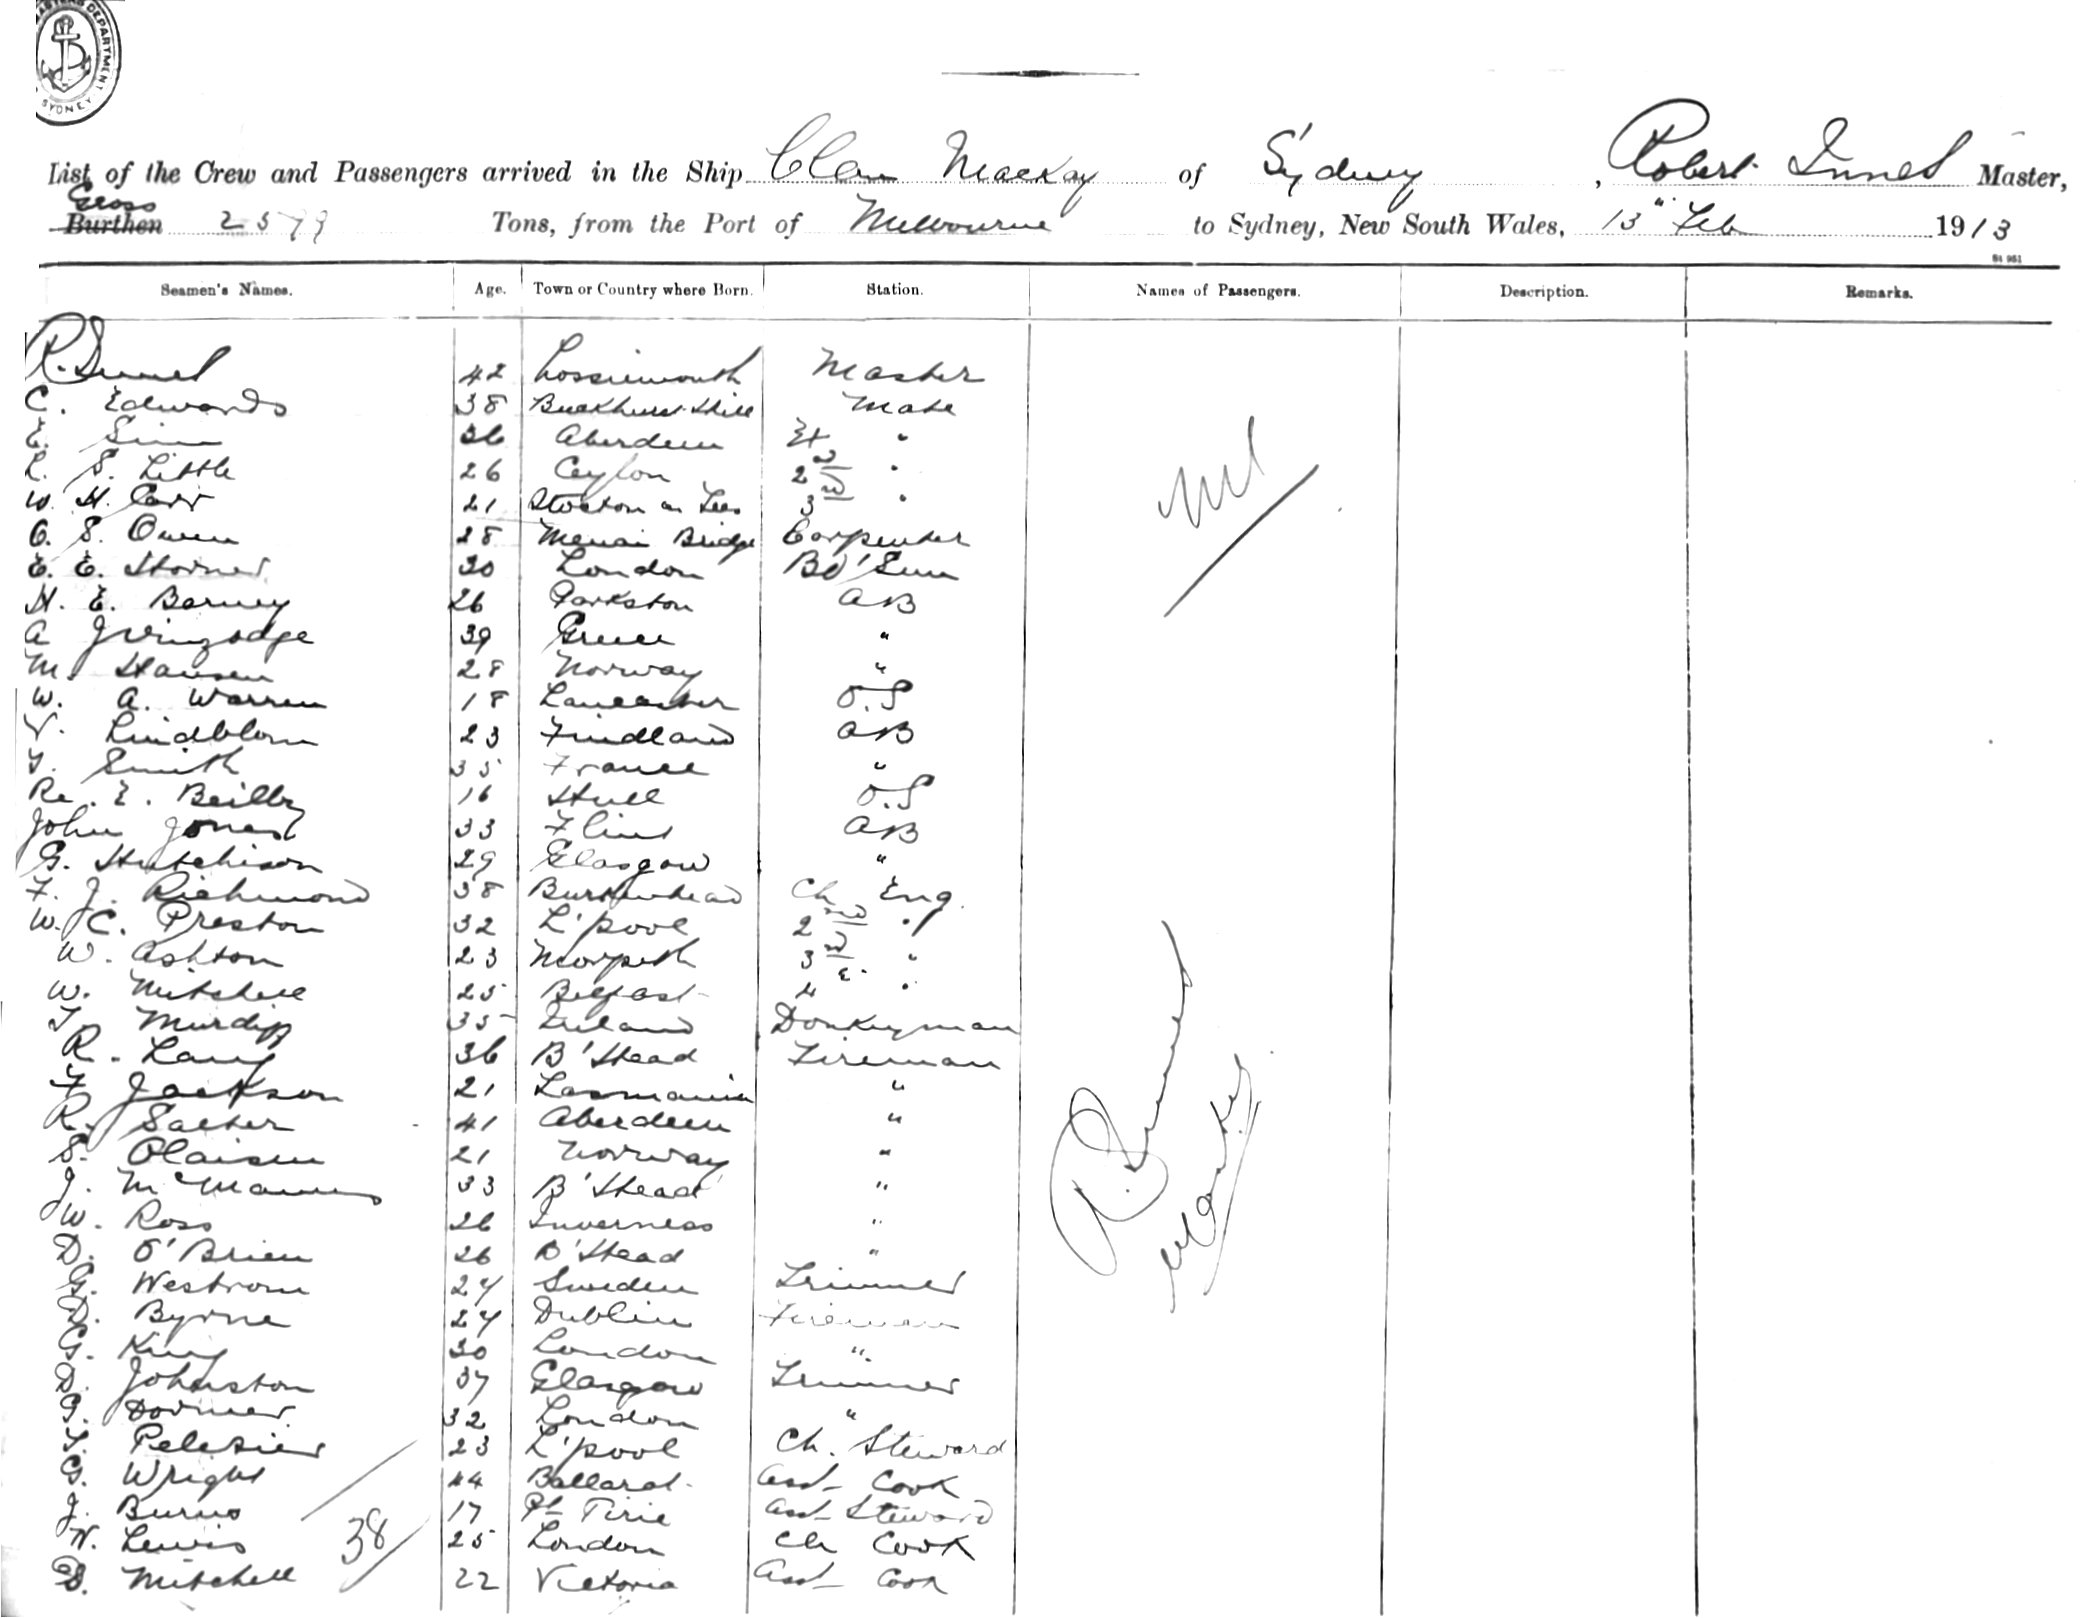 MASTERS DEPARTMENT SYDNEY
List of the Crew and Passengers arrived in the Ship Clan Mackay of Sydney, Robert Innes Master,
Gross
Burthen 2579 Tons, from the Port of Melbourne to Sydney, New South Wales, 13" Feb 1913
St 951
Seamen's Names. Age. Town or Country where Born. Station. Names of Passengers. Description. Remarks.
R. Innes 42 Lossiemouth Master
C. Edwards 38 Buckhurst Hill Mate
E. Sim 36 Aberdeen Ex "
L. S. Little 26 Ceylon 2nd "
W. H. Carr 21 Stockton on Tees 3rd "
O. S. Owen 28 Menai Bridge Carpenter
E. E. Horner 30 London Bo'Sun
H. E. Barney 26 Parkston AB
A 39 Greece "
M. Hansen 28 Norway "
W. A. Warren 18 Lancaster O.S
V. Lindblom 23 Findland AB
T. Smith 35 France "
Re. E. Beilby 16 Hull O.S
John Jones 33 Flint AB
G. Hutchison 29 Glasgow "
F. J. Richmond 38 Burkenhead Ch Eng.
W. C. Preston 32 L'pool 2nd "
W. Ashton 23 Morpeth 3rd "
W. Mitchell 25 Belfast 4 "
T. Murdiff 35 Ireland Donkeyman
R. Lang 36 B'Head Fireman
F Jackson 21 Tasmania "
R. Salter 41 Aberdeen "
S. Olaisen 21 Norway "
J. McManus 33 B'Head "
W. Ross 26 Inverness "
D. O'Brien 26 B'Head "
G. Westrom 24 Sweden Trimmer
D. Byrne 24 Dublin Fireman
G. King 30 London "
D. Johnston 37 Glasgow Trimmer
G. Dormer 32 London "
T. Pelesier 23 L'pool Ch. Steward
G. Wright 44 Ballarat Asst Cook
J. Burns 17 Pt Pirie Asst Steward
W. Lewis 25 London Ch Cook
B. Mitchell 22 Victoria Asst Cook
38
Nil
R. Innes
Master